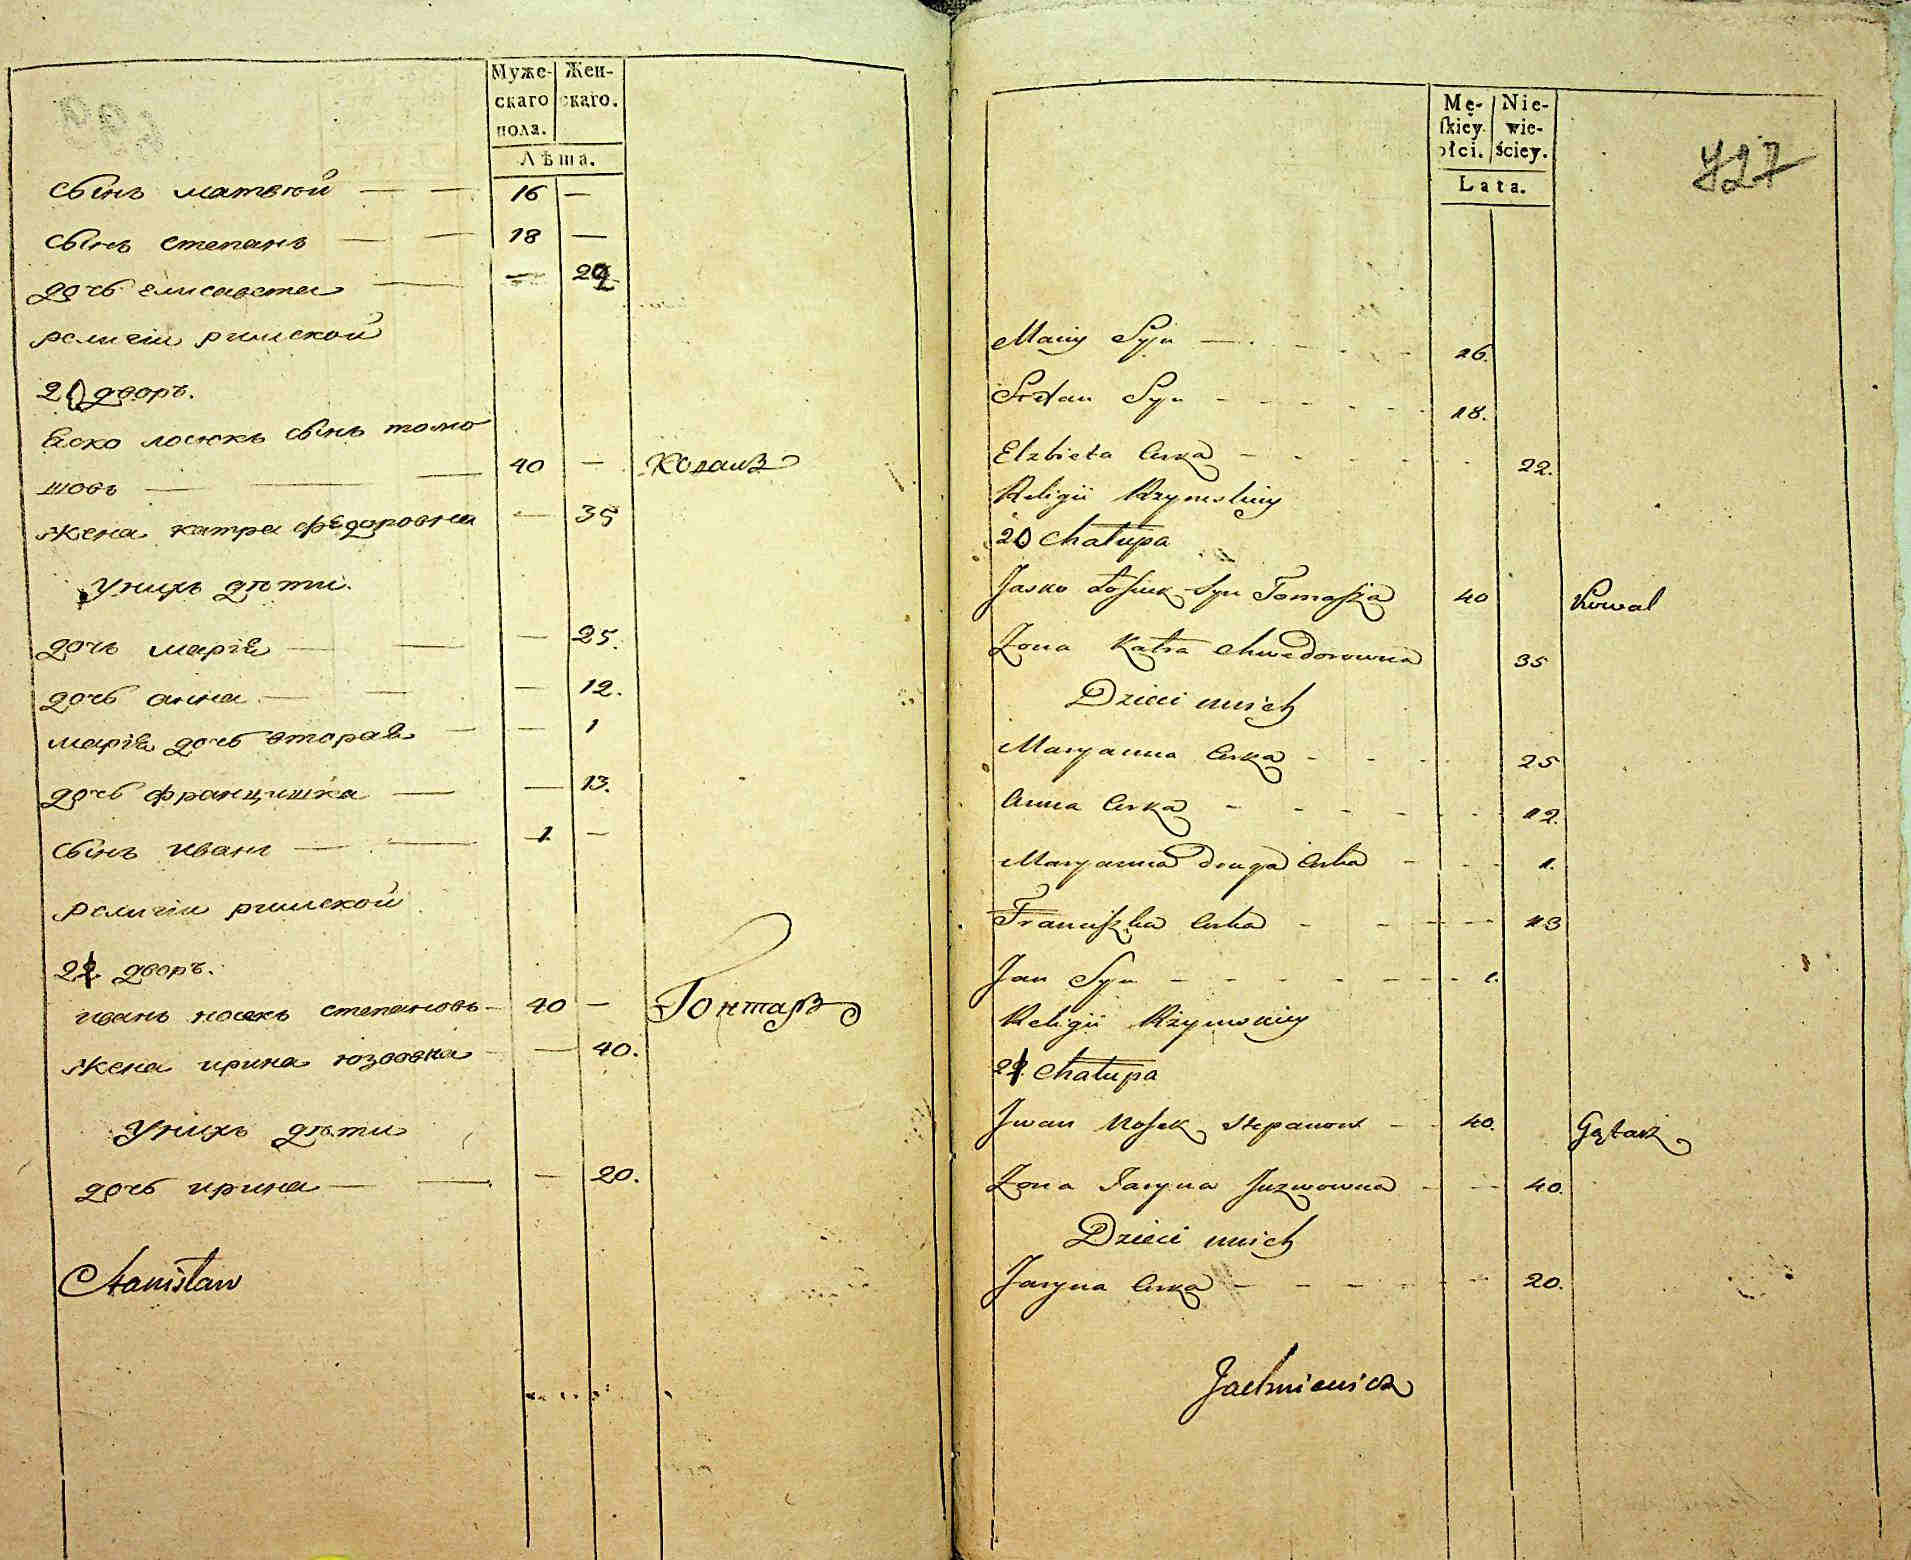 Муже-
скаго
пола.
Жен-
скаго.
Лѣта.
сынъ матвей — — 16 —
сынъ степанъ — — 18 —
дочь елисавета — — 22
религiи римской
20 дворъ.
Яско лосюкъ сынъ томо
шовъ — — — 40 — Коваль
жена катра федоровна — 35
У нихъ дѣти.
дочь марiя — — — 25.
дочь анна — — — 12.
марiя дочь вторая — — 1
дочь францишка — — 13.
сынъ иванъ — — 1 —
религiи римской
21 дворъ.
иванъ носекъ степановъ — 40 — Гонтарь
жена ирина юзвовна — — 40.
У нихъ дѣти
дочь ирина — — — 20.
Stanisław
Mę-
skiey
płci.
Nie-
wie-
ściey.
Lata.
727
Maciy Syn — 16.
Stefan Syn - - - - - 18.
Elzbieta Curka - - - - - 22.
Religii Rzymskiey
20 Chałupa
Jasko Łosiuk Syn Tomasza 40 Kowal
Zona Katra Chwedorowna 35
Dzieci unich
Maryanna Curka - - - 25
Anna Curka - - - - - 12.
Maryanna druga Curka - - - 1.
Franciszka Curka - - - - 13
Jan Syn - - - - - - 1.
Religii Rzymskiey
21 Chałupa
Jwan Nosek Stepanow - - 40. Gątarz
Zona Jaryna Juzwowna - - - 40.
Dzieci unich
Jaryna Curka - - - - - 20.
Jachmiewicz